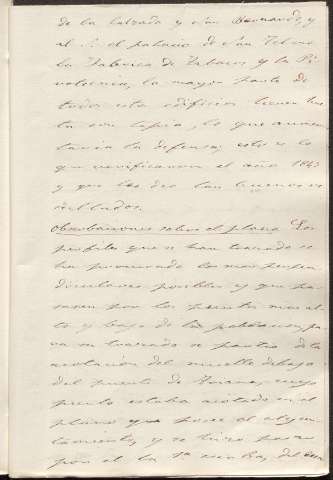 de la Calzada y San Bernardo, y
al S. el palacio de San Telmo
la Fabrica de Tabacos y la Pi
rotecnia, la mayor parte de
todos estos edificios tienen hues
ta con tapia, lo que aumen
taria la defensa; esto es lo
que verificaron el año 1843
y que les dio tan buenos re
sultados.
Observaciones sobre el plano Los
perfiles que se han trazado se
ha procurado los mas perpen
diculares posibles y que pa
sasen por los puntos mas al
tos y bajos de la poblacion, pa
ra su trazado se partio de la
acotacion del muelle debajo
del puente de Triana, cuyo
punto estaba acotado en el
plano que posee el ayun
tamiento, y se hizo pasar
por el la 1ª curva, del